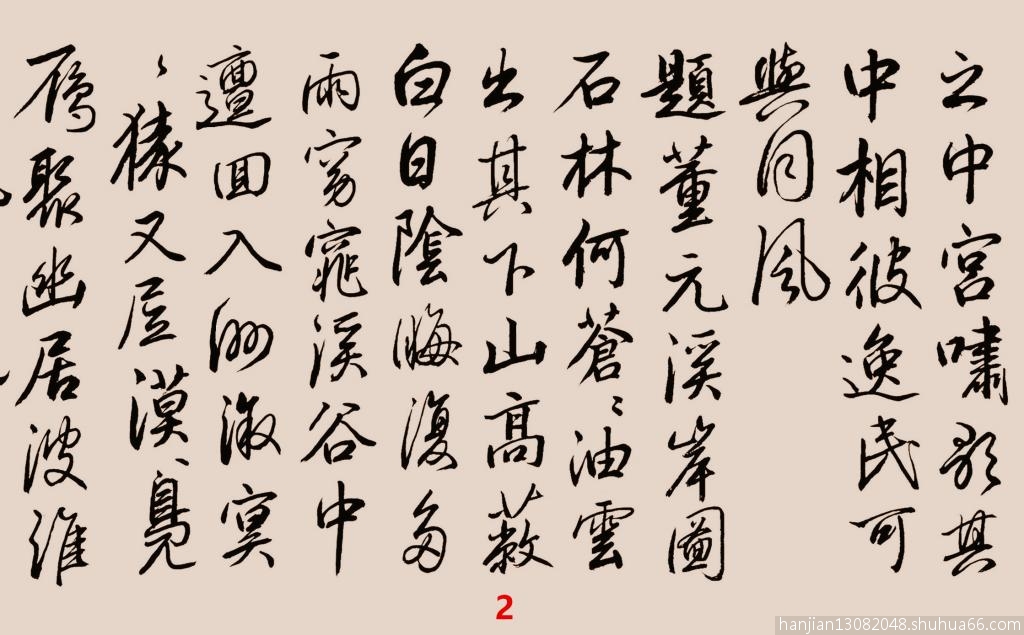 之中宮嘯歌其
中相彼逸民可
與同風
題董元溪岸圖
石林何蒼〻油雲
出其下山高蔽
白日陰晦復多
雨窈窕溪谷中
邅回入洲溆冥
〻猿又居漠〻鳧
雁聚幽居彼誰
2
hanjian13082048.shuhua66.com